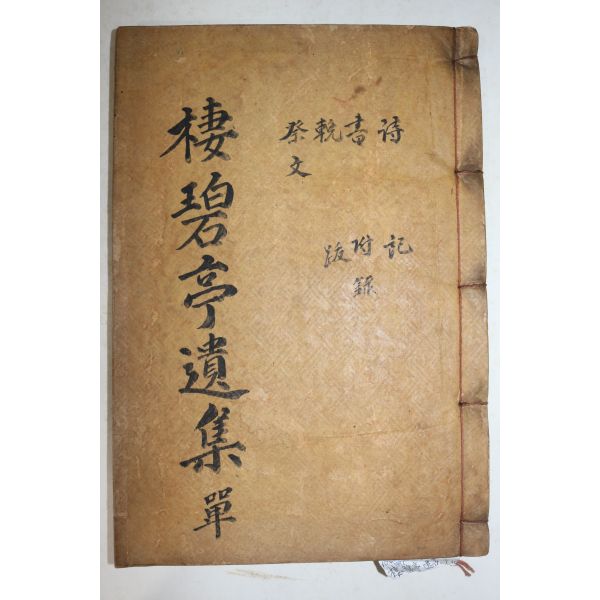 詩
書
輓
祭文
記
附錄
跋
棲碧亭遺集 單